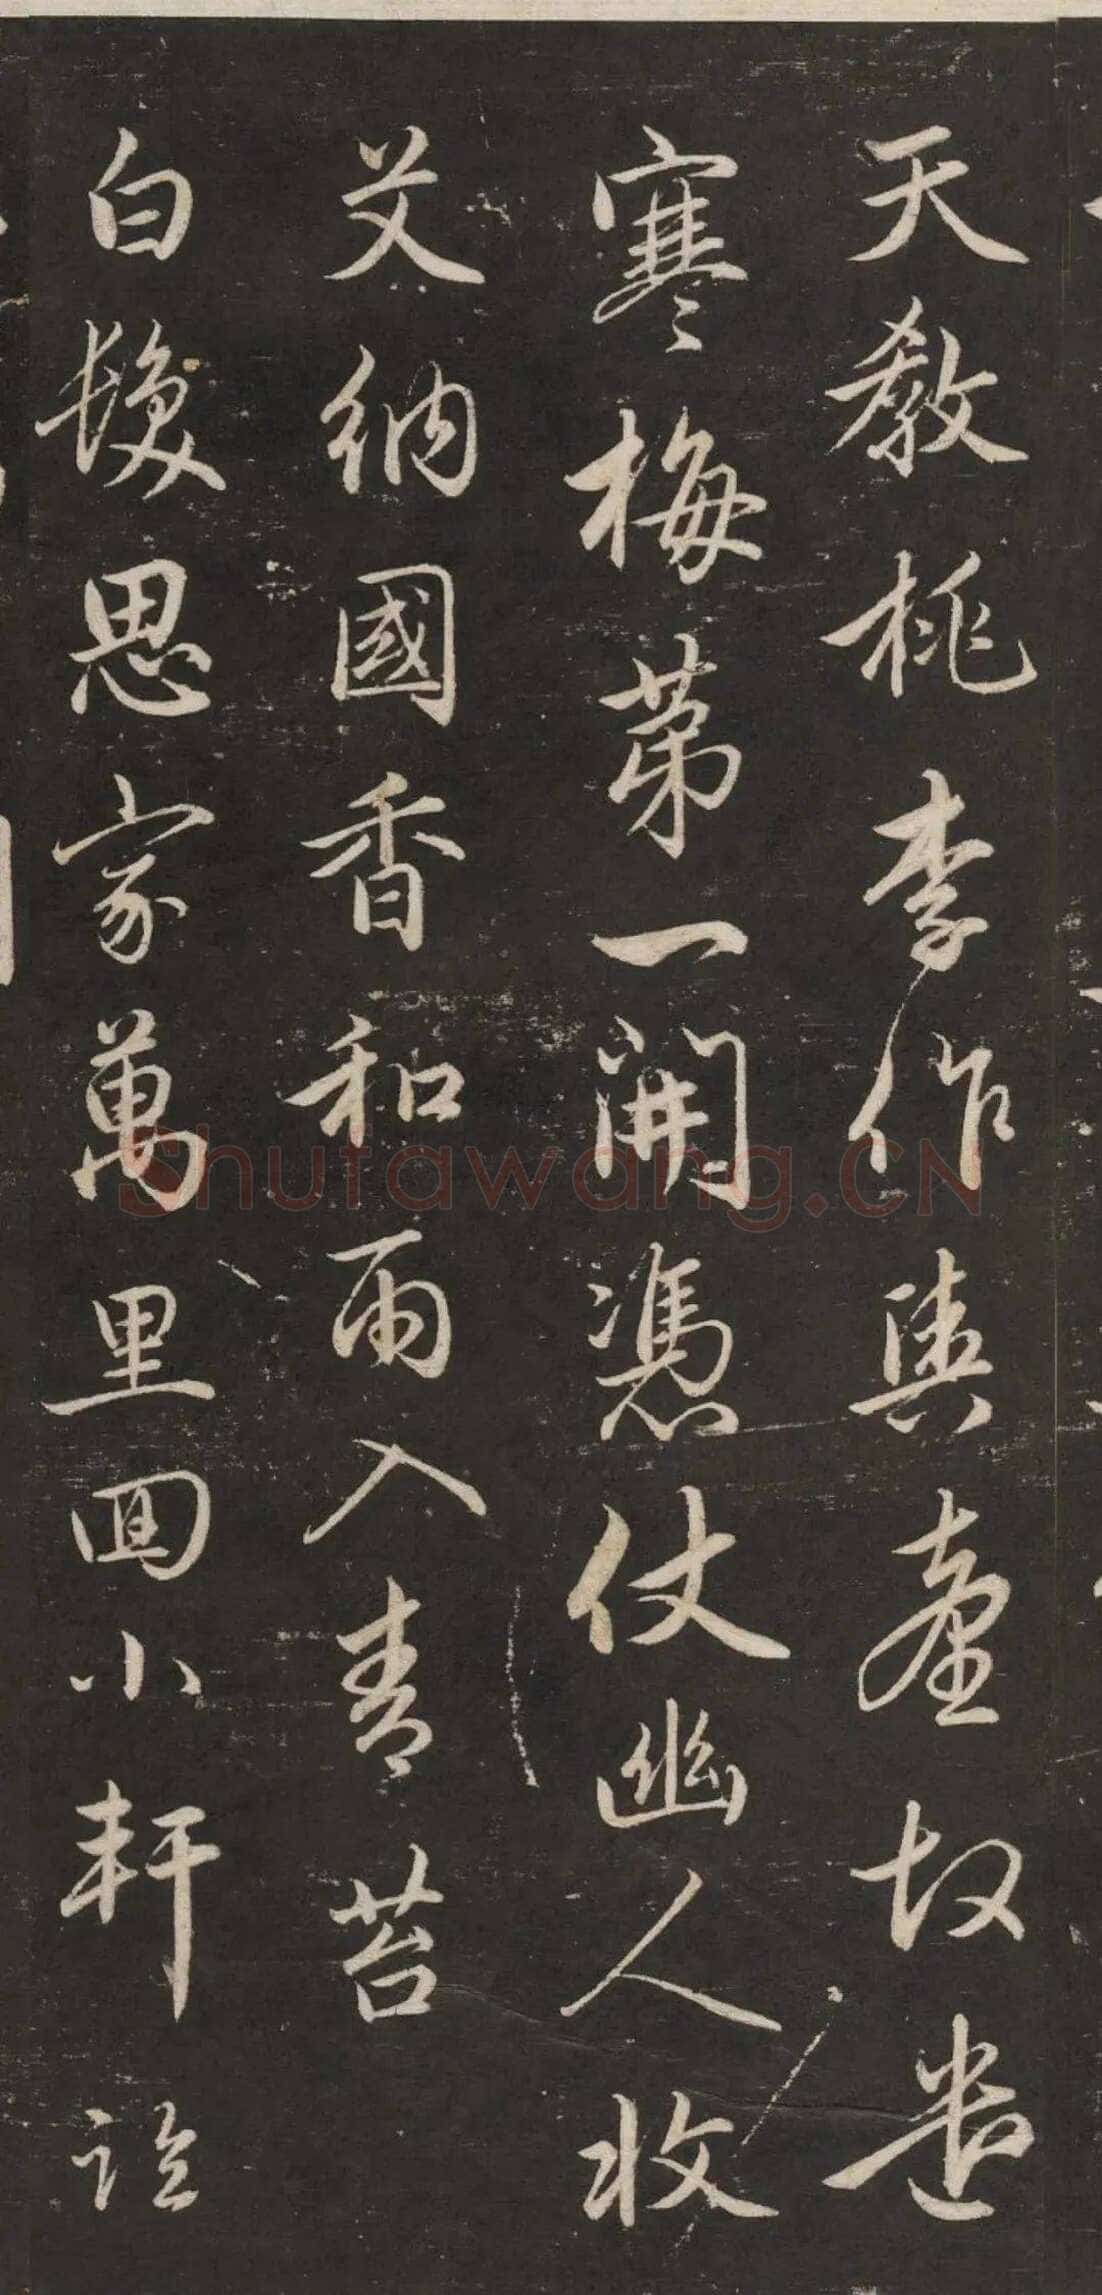 天教桃李作輿臺故遣
寒梅第一開憑仗幽人收
艾納國香和雨入青苔
白髮思家萬里囬小軒臨
Shufawang.CN